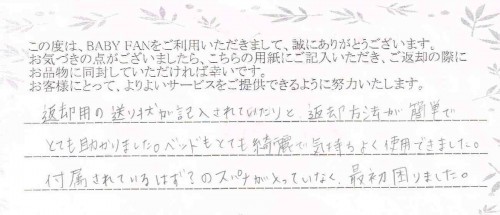 この度は、BABY FANをご利用いただきまして、誠にありがとうございます。
お気づきの点がございましたら、こちらの用紙にご記入いただき、ご返却の際に
お品物に同封していただければ幸いです。
お客様にとって、よりよいサービスをご提供できるように努力いたします。
返却用の送り状が記入されていたりと、返却方法が簡単で
とても助かりました。ベッドもとても綺麗で気持ちよく使用できました。
付属されているはず?のスパナが入っていなく、最初困りました。